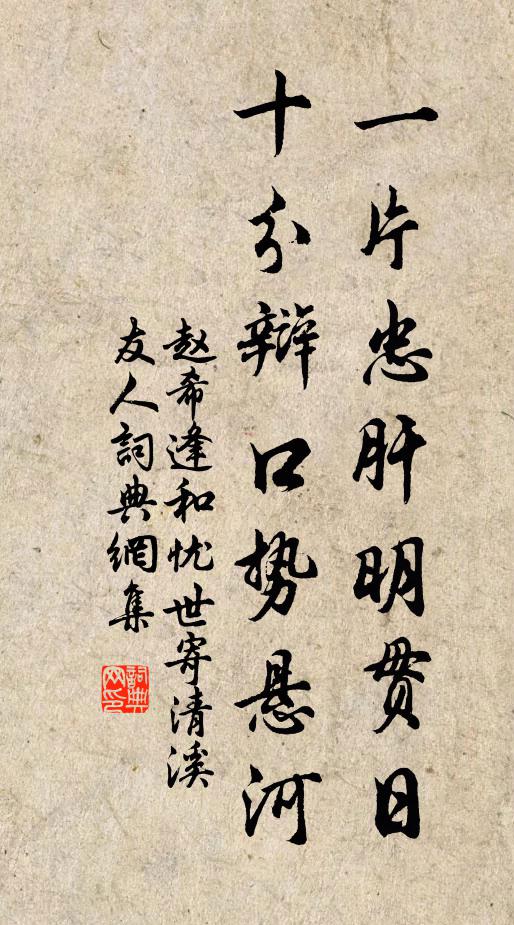 一片忠肝明贯日
十分辩口势悬河
赵希逢和忧世寄清溪
友人詞典網集
詞典
网印